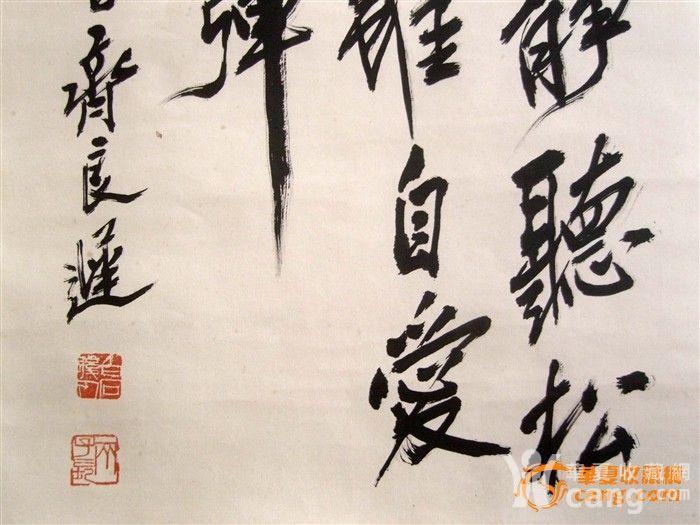 靜聽松
雖自愛
彈
齊良遲
華夏收藏網
cang.com